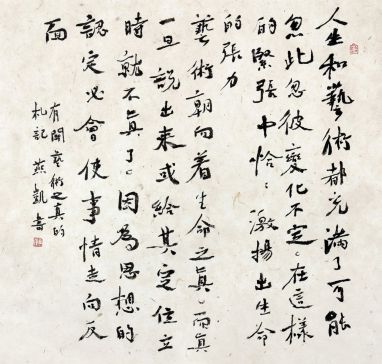 人生和藝術都充滿了可能
忽此忽彼變化不定。在這樣
的緊張中恰〻激揚出生命
的張力
藝術朝向着生命之真。而真
一旦說出来或給其定位立
時就不真了。因為思想的
認定必會使事情走向反
面
有關藝術之真的
札記 燕凱書